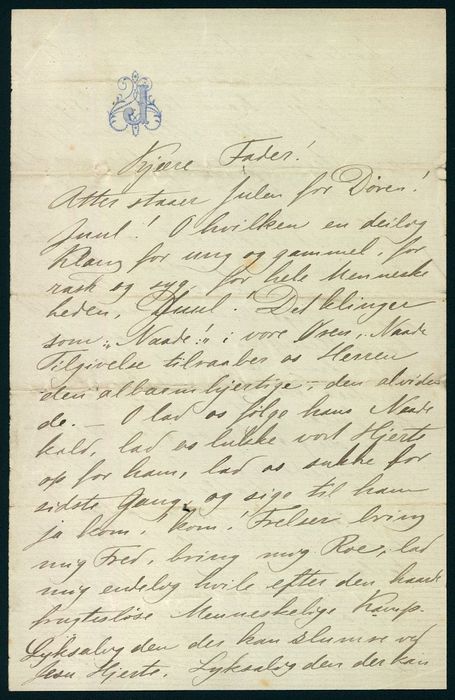 J
Kjære Fader!
Atter staaer Julen for Døren!
Juul! O hvilken en deilig
Klang for ung og gammel, for
rask og syg, for hele Menneske
heden, Juul! Det klinger
som "Naade!" i vore Øren, Naade
Tilgivelse tilraaber os Herren
den albarmhjertige, den alviden
de. – O lad os følge hans Naade
kald, lad os lukke vort Hjerte
op for ham, lad os sukke for
sidste Gang, og sige til ham
ja kom! kom! Frelser bring
mig Fred, bring mig Roe, lad
mig endelig hvile efter den haarde
frugtesløse Menneskelige Kamp.
Lyksalig den der kan slumre ved
Jesu Hjerte. Lyksalig den der kan